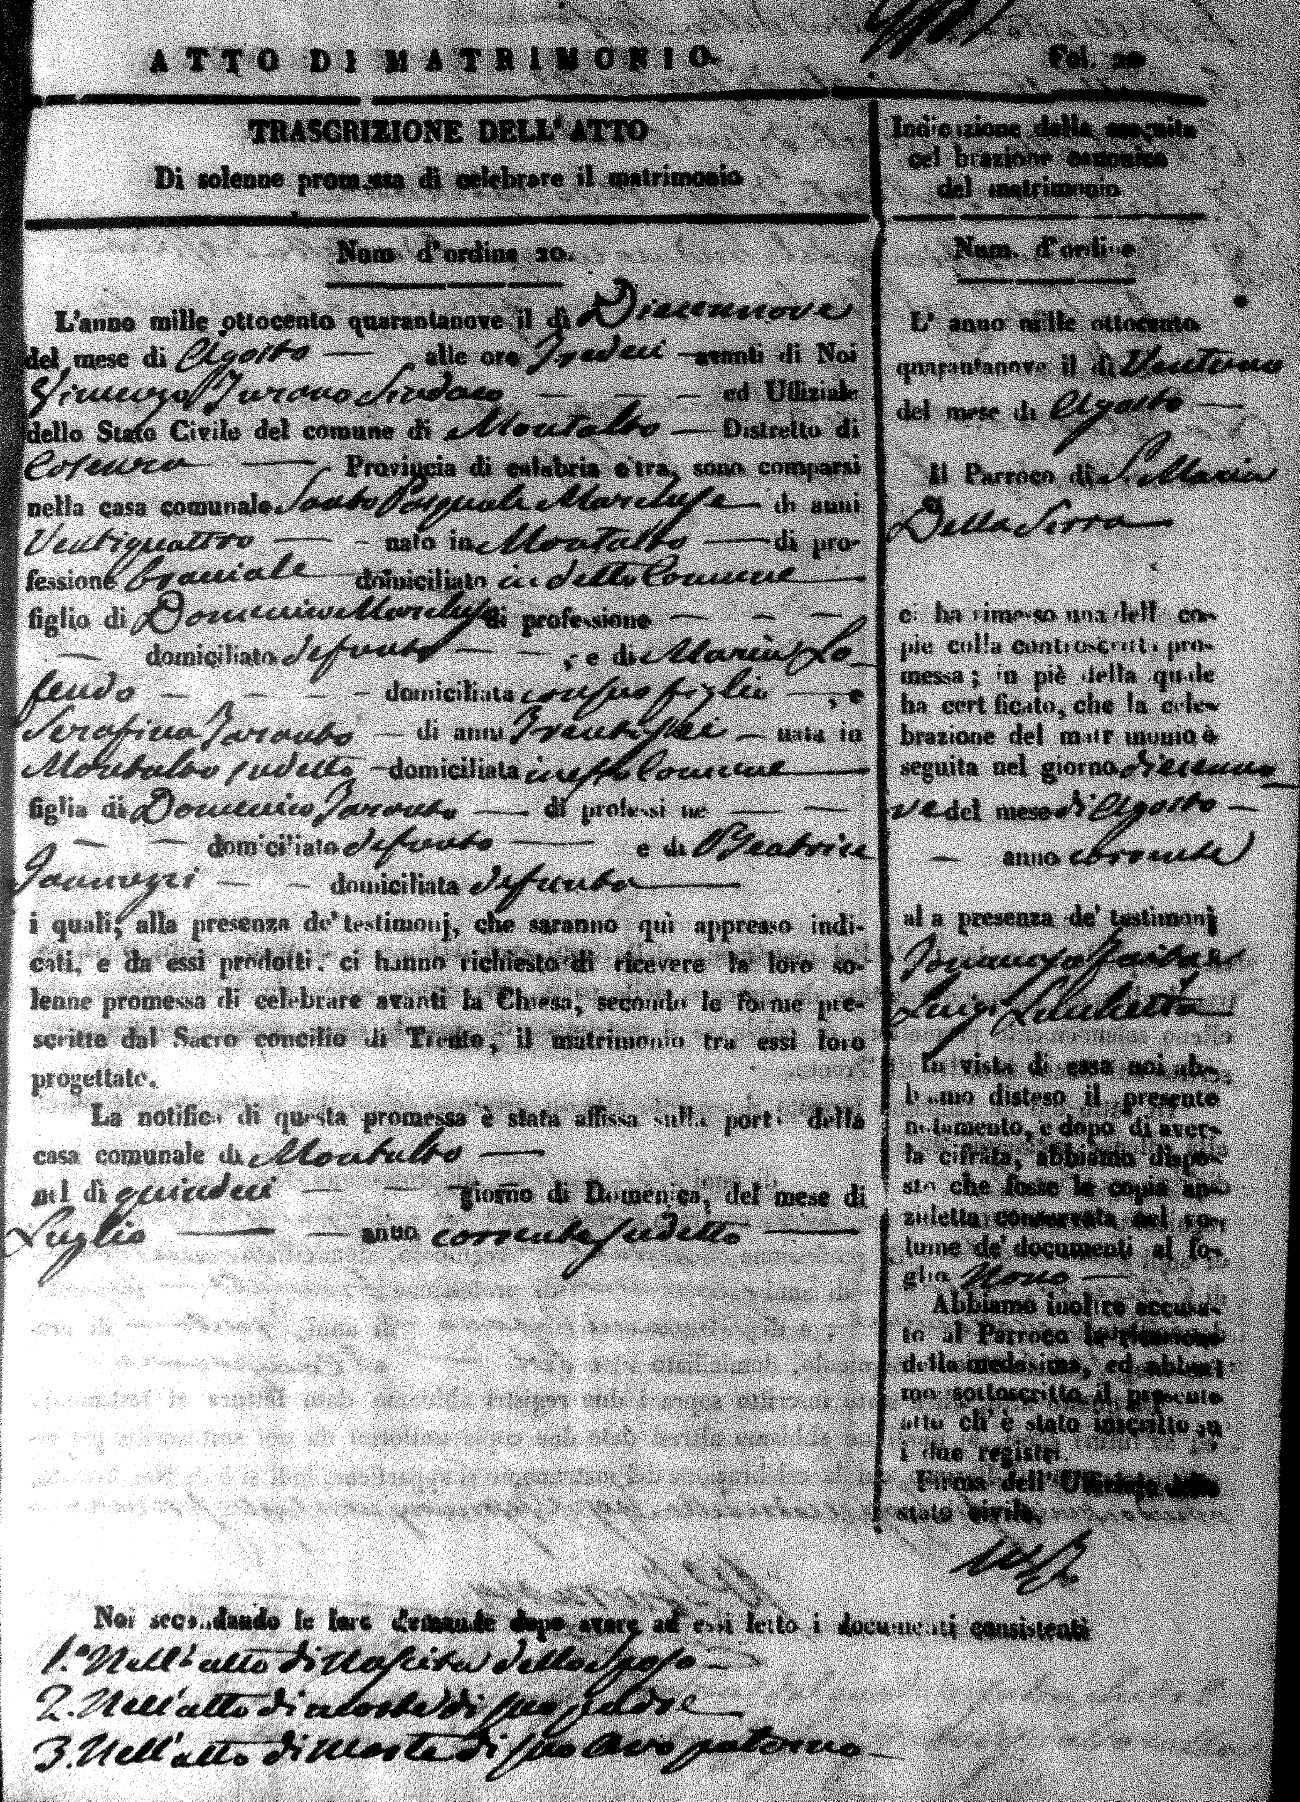 ATTO DI MATRIMONIO
Fol. 20
TRASCRIZIONE DELL' ATTO
Di solenne promessa di celebrare il matrimonio
Num. d'ordine 20.
L'anno mille ottocento quarantanove il dì Diecennove
del mese di Agosto — alle ore Tredeci — avanti di Noi
Vincenzo Turano Sindaco — — — ed Uffiziale
dello Stato Civile del comune di Montalto — Distretto di
Cosenza — Provincia di calabria citra, sono comparsi
nella casa comunale Santo Pasquale Marchese — di anni
Ventiquattro — - nato in Montalto — di pro-
fessione Bracciale domiciliato in detto Comune —
figlio di Domenico Marchese di professione — - —
— domiciliato defunto — — ; e di Maria Lo-
feudo — - - - domiciliata con suo figlio — ; e
Serafina Taranto — di anni Trentasei — nata in
Montalto sudetto — domiciliata in esso Comune —
figlia di Domenico Taranto — di professione — —
— — domiciliato defunto — e di Beatrice
domiciliata defunta —
i quali, alla presenza de' testimonj, che saranno quì appresso indi-
cati, e da essi prodotti, ci hanno richiesto di ricevere la loro so-
lenne promessa di celebrare avanti la Chiesa, secondo le forme pre-
scritte dal Sacro concilio di Trento, il matrimonio tra essi loro
progettato.
La notifica di questa promessa è stata affissa sulla porta della
casa comunale di Montalto —
nel dì quindeci — - — giorno di Domenica, del mese di
Luglio — — anno corrente sudetto —
Indicazione della seguita
celebrazione canonica
del matrimonio
Num. d'ordine
L' anno mille ottocento
quarantanove il dì Ventuno
del mese di Agosto —
Il Parroco di S. Maria
Della Serra —
ci ha rimesso una delle co-
pie colla controscritta pro-
messa; in piè della quale
ha certificato, che la cele-
brazione del matrimonio è
seguita nel giorno diecenno
ve del mese di Agosto —
— anno corrente
alla presenza de' testimonj
Luigi
In vista di essa noi ab-
biamo disteso il presente
notamento, e dopo di aver-
la cifrata, abbiamo dispo-
sto che fosse la copia an-
zidetta conservata nel vo-
lume de' documenti al fo-
glio Nono —
Abbiamo inoltre accusa-
to al Parroco la ricezione
della medesima, ed abbia-
mo sottoscritto il presente
atto ch' è stato inscritto su
i due registri.
Firma dell' Uffiziale dello
stato civile.
Noi secondando le loro demande dopo avere ad essi letto i documenti consistenti
1.° Nell'atto di Nascita dello Sposo —
2. Nell'atto di morte di suo padre —
3. Nell'atto di Morte di suo Avo paterno —